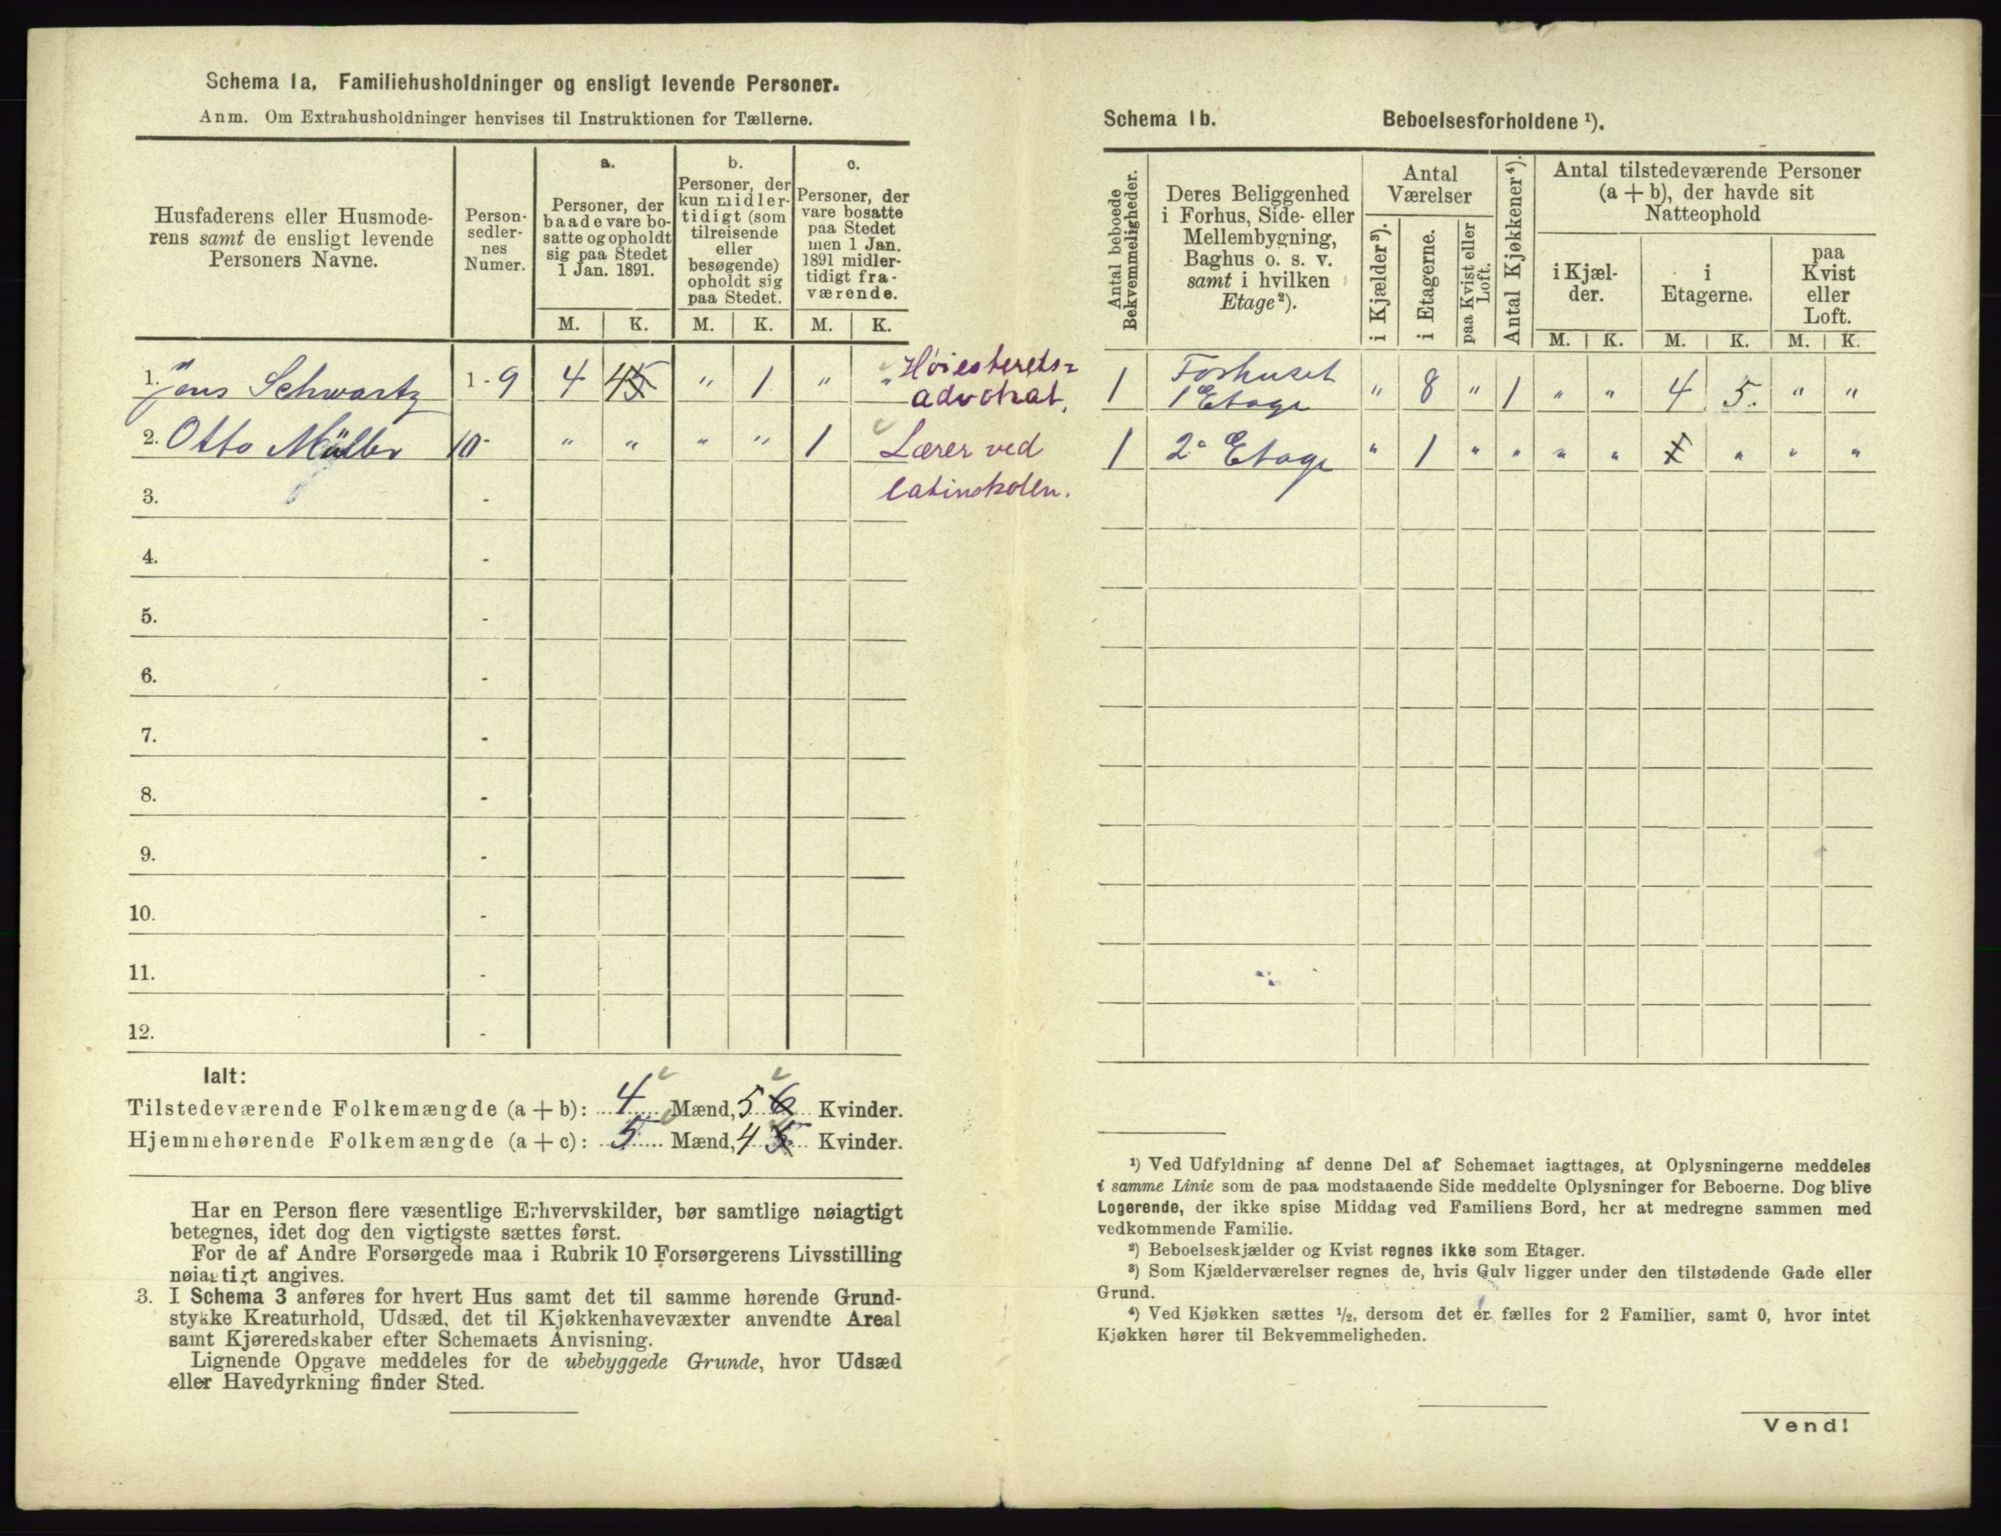 Schema 1a. Familiehusholdninger og ensligt levende Personer.
Anm. Om Extrahusholdninger henvises til Instruktionen for Tællerne.
Husfaderens eller Husmode-
rens samt de ensligt levende
Personers Navne.
Person-
sedler-
nes
Numer.
a.
Personer, der
baade vare bo-
satte og opholdt
sig paa Stedet
1 Jan. 1891.
b.
Personer, der
kun midler-
tidigt (som
tilreisende
eller
besøgende)
opholdt sig
paa Stedet.
c.
Personer, der
vare bosatte
paa Stedet
men 1 Jan.
1891 midler-
tidigt fra-
værende.
M. K. M. K. M. K.
1. Jens Schwartz 1 - 9 4 4 5 " 1 " " Høiesterets=
advokat.
2. Otto Müller 10 - " " " " 1 Lærer ved
3. - latinskolen.
4. -
5. -
6. -
7. -
8. -
9. -
10. -
11. -
12. -
Ialt:
Tilstedeværende Folkemængde (a + b): 4 Mænd, 5 6 Kvinder.
Hjemmehørende Folkemængde (a + c): 5 Mænd, 4 5 Kvinder.
Har en Person flere væsentlige Erhvervskilder, bør samtlige nøiagtigt
betegnes, idet dog den vigtigste sættes først.
For de af Andre Forsørgede maa i Rubrik 10 Forsørgerens Livsstilling
nøiagtigt angives.
3. I Schema 3 anføres for hvert Hus samt det til samme hørende Grund-
stykke Kreaturhold, Udsæd, det til Kjøkkenhavevæxter anvendte Areal
samt Kjøreredskaber efter Schemaets Anvisning.
Lignende Opgave meddeles for de ubebyggede Grunde, hvor Udsæd
eller Havedyrkning finder Sted.
Schema 1b. Beboelsesforholdene ¹).
Antal beboede
Bekvemmeligheder.
Deres Beliggenhed
i Forhus, Side- eller
Mellembygning,
Baghus o. s. v.
samt i hvilken
Etage²).
Antal
Værelser
i Kjælder³).
i Etagerne.
paa Kvist eller
Loft.
Antal Kjøkkener⁴).
Antal tilstedeværende Personer
(a + b), der havde sit
Natteophold
i Kjæl-
der.
i
Etagerne.
paa
Kvist
eller
Loft.
M. K. M. K. M. K.
1 Forhuset
1 Etage " 8 " 1 " " 4 5. " "
1 2 Etage " 1 " " " " 1 " " "
¹) Ved Udfyldning af denne Del af Schemaet iagttages, at Oplysningerne meddeles
i samme Linie som de paa modstaaende Side meddelte Oplysninger for Beboerne. Dog blive
Logerende, der ikke spise Middag ved Familiens Bord, her at medregne sammen med
vedkommende Familie.
²) Beboelseskjælder og Kvist regnes ikke som Etager.
³) Som Kjælderværelser regnes de, hvis Gulv ligger under den tilstødende Gade eller
Grund.
⁴) Ved Kjøkken sættes ½, dersom det er fælles for 2 Familier, samt 0, hvor intet
Kjøkken hører til Bekvemmeligheden.
Vend!